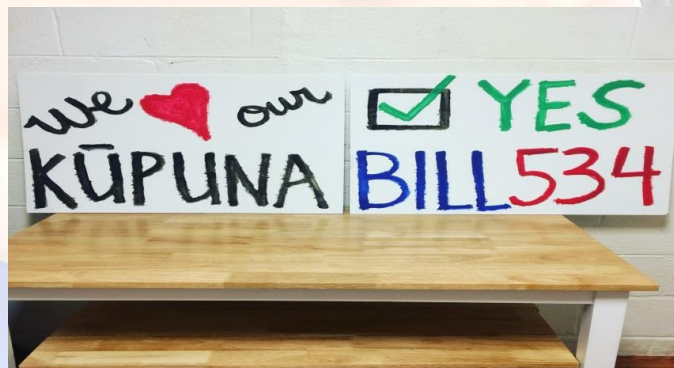 We ❤ our
KŪPUNA
☑ YES
BILL 534